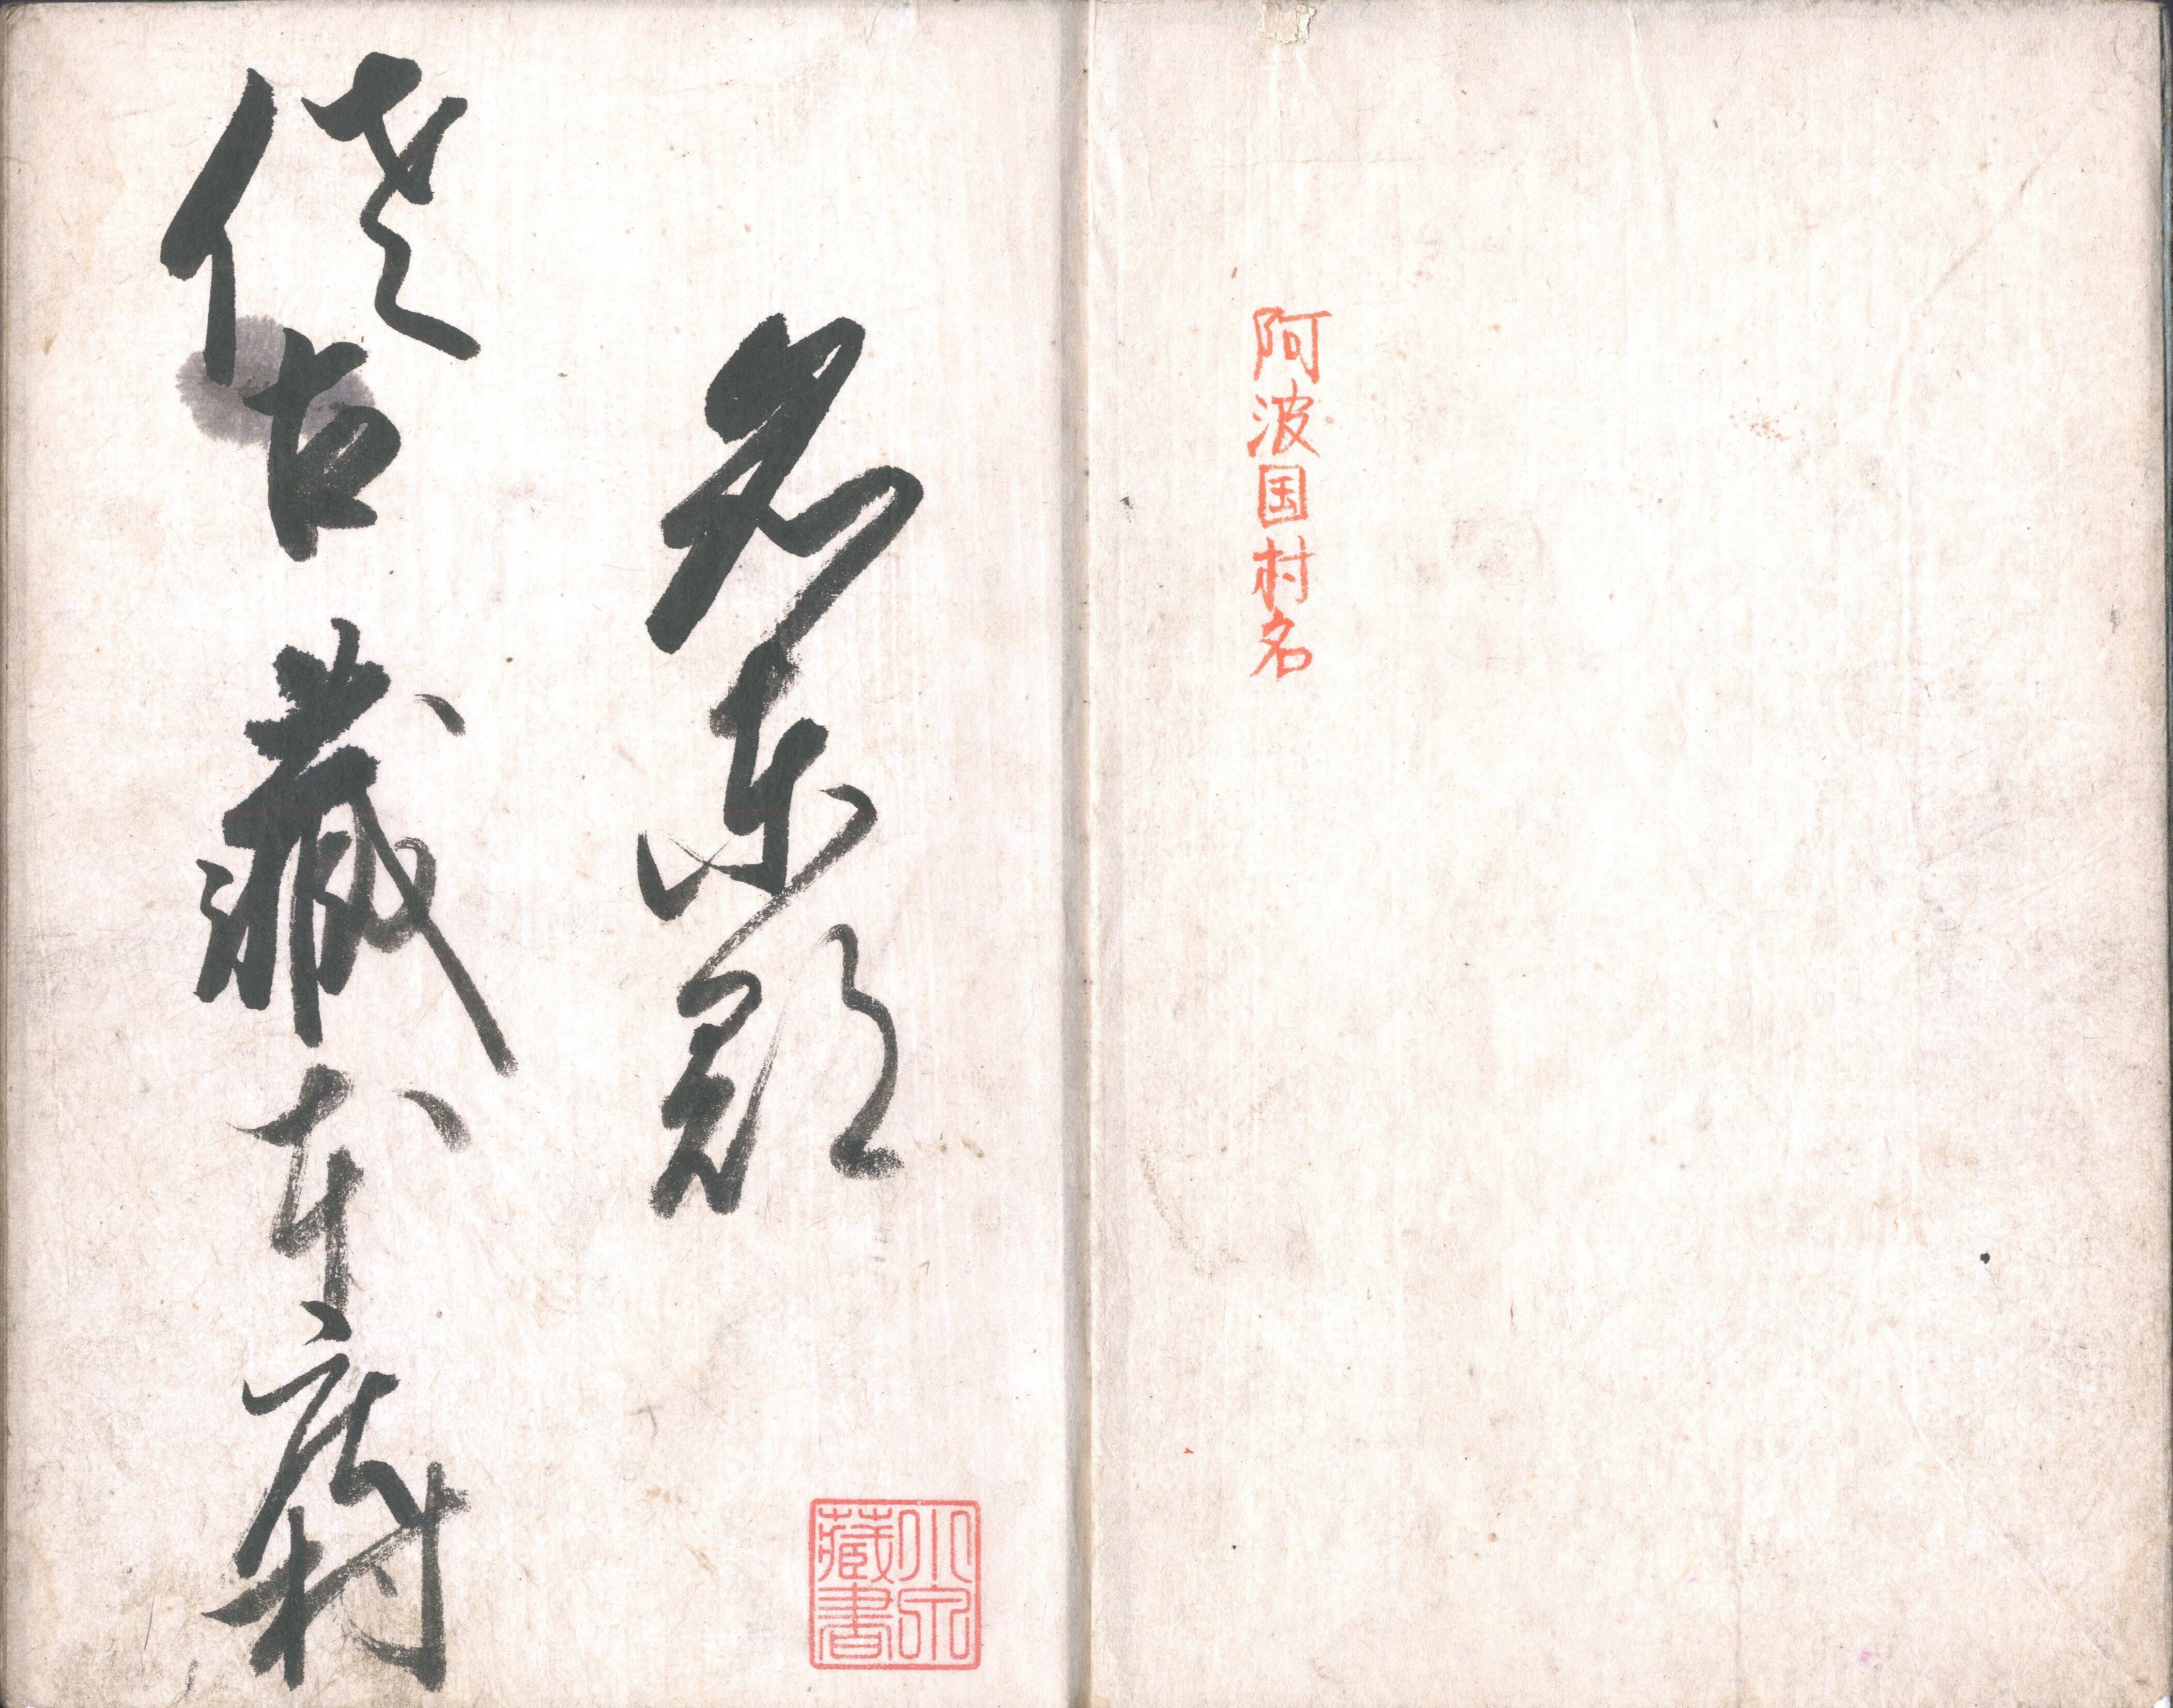 阿波国村名
名東郡
佐古 藏本 庄村
藏書